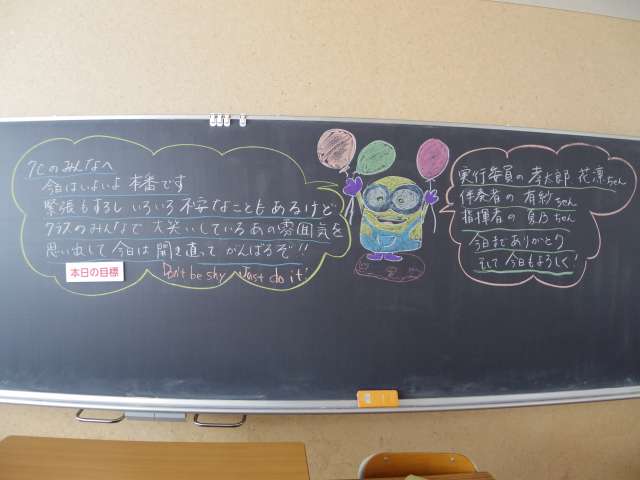 7Cのみんなへ
今日はいよいよ本番です
緊張もするしいろいろ不安なこともあるけど
クラスのみんなで大笑いしているあの雰囲気を
思い出して今日は開き直ってがんばるぞ!!
本日の目標
Don't be shy Just do it!
実行委員の孝太郎 花凛ちゃん
伴奏者の有紗ちゃん
指揮者の 夏乃ちゃん
今日までありがとう
そして今日もよろしく!